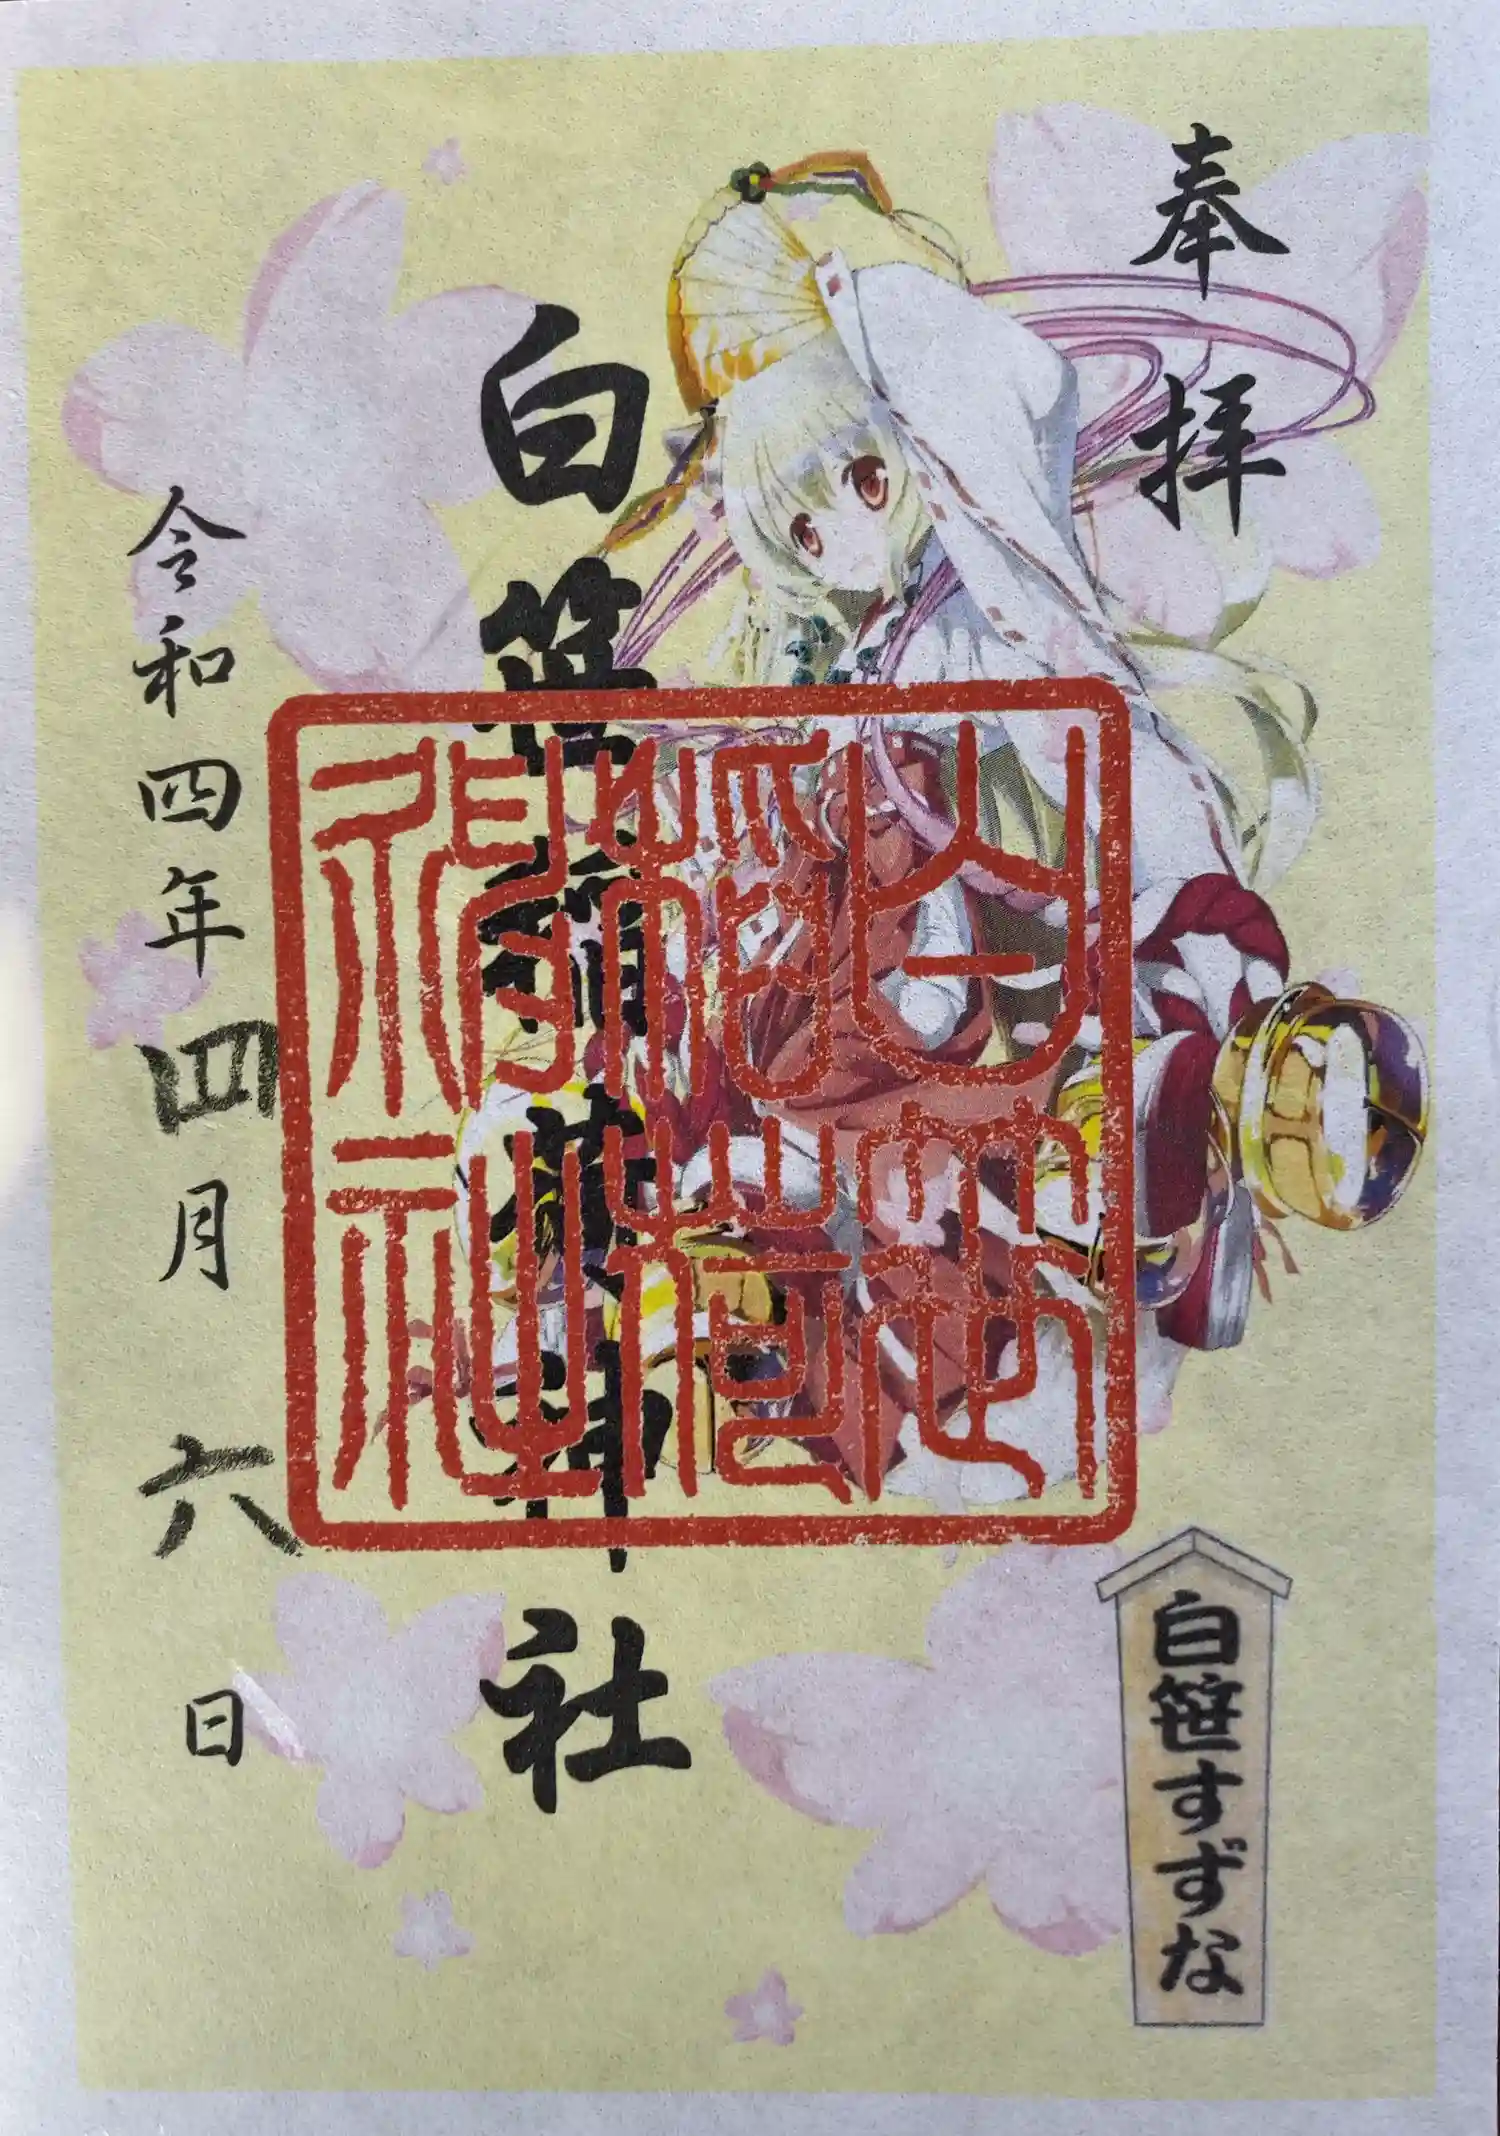 奉拝
白笹稲荷神社
令和四年四月六日
白笹すずな
白笹稲荷神社